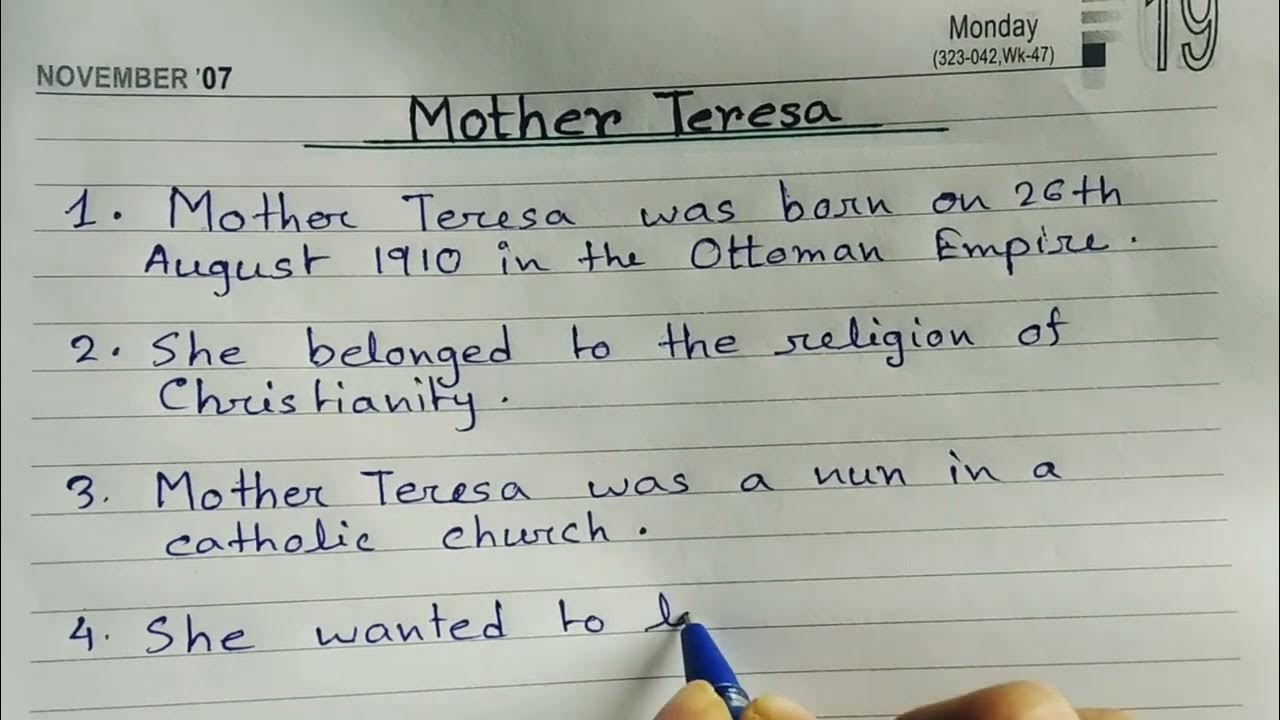 Monday
19
(323-042,Wk-47)
NOVEMBER '07
Mother Teresa
1. Mother Teresa was born on 26th
August 1910 in the Ottoman Empire.
2. She belonged to the religion of
Christianity.
3. Mother Teresa was a nun in a
catholic church.
4. She wanted to